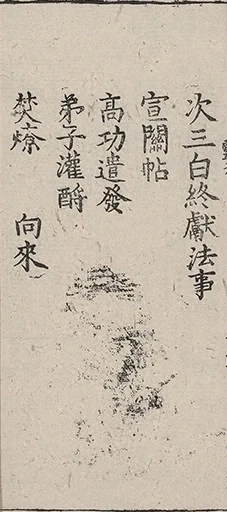 次三白終獻法事
宣關帖
高功遣發
弟子灌酹
焚燎　向來